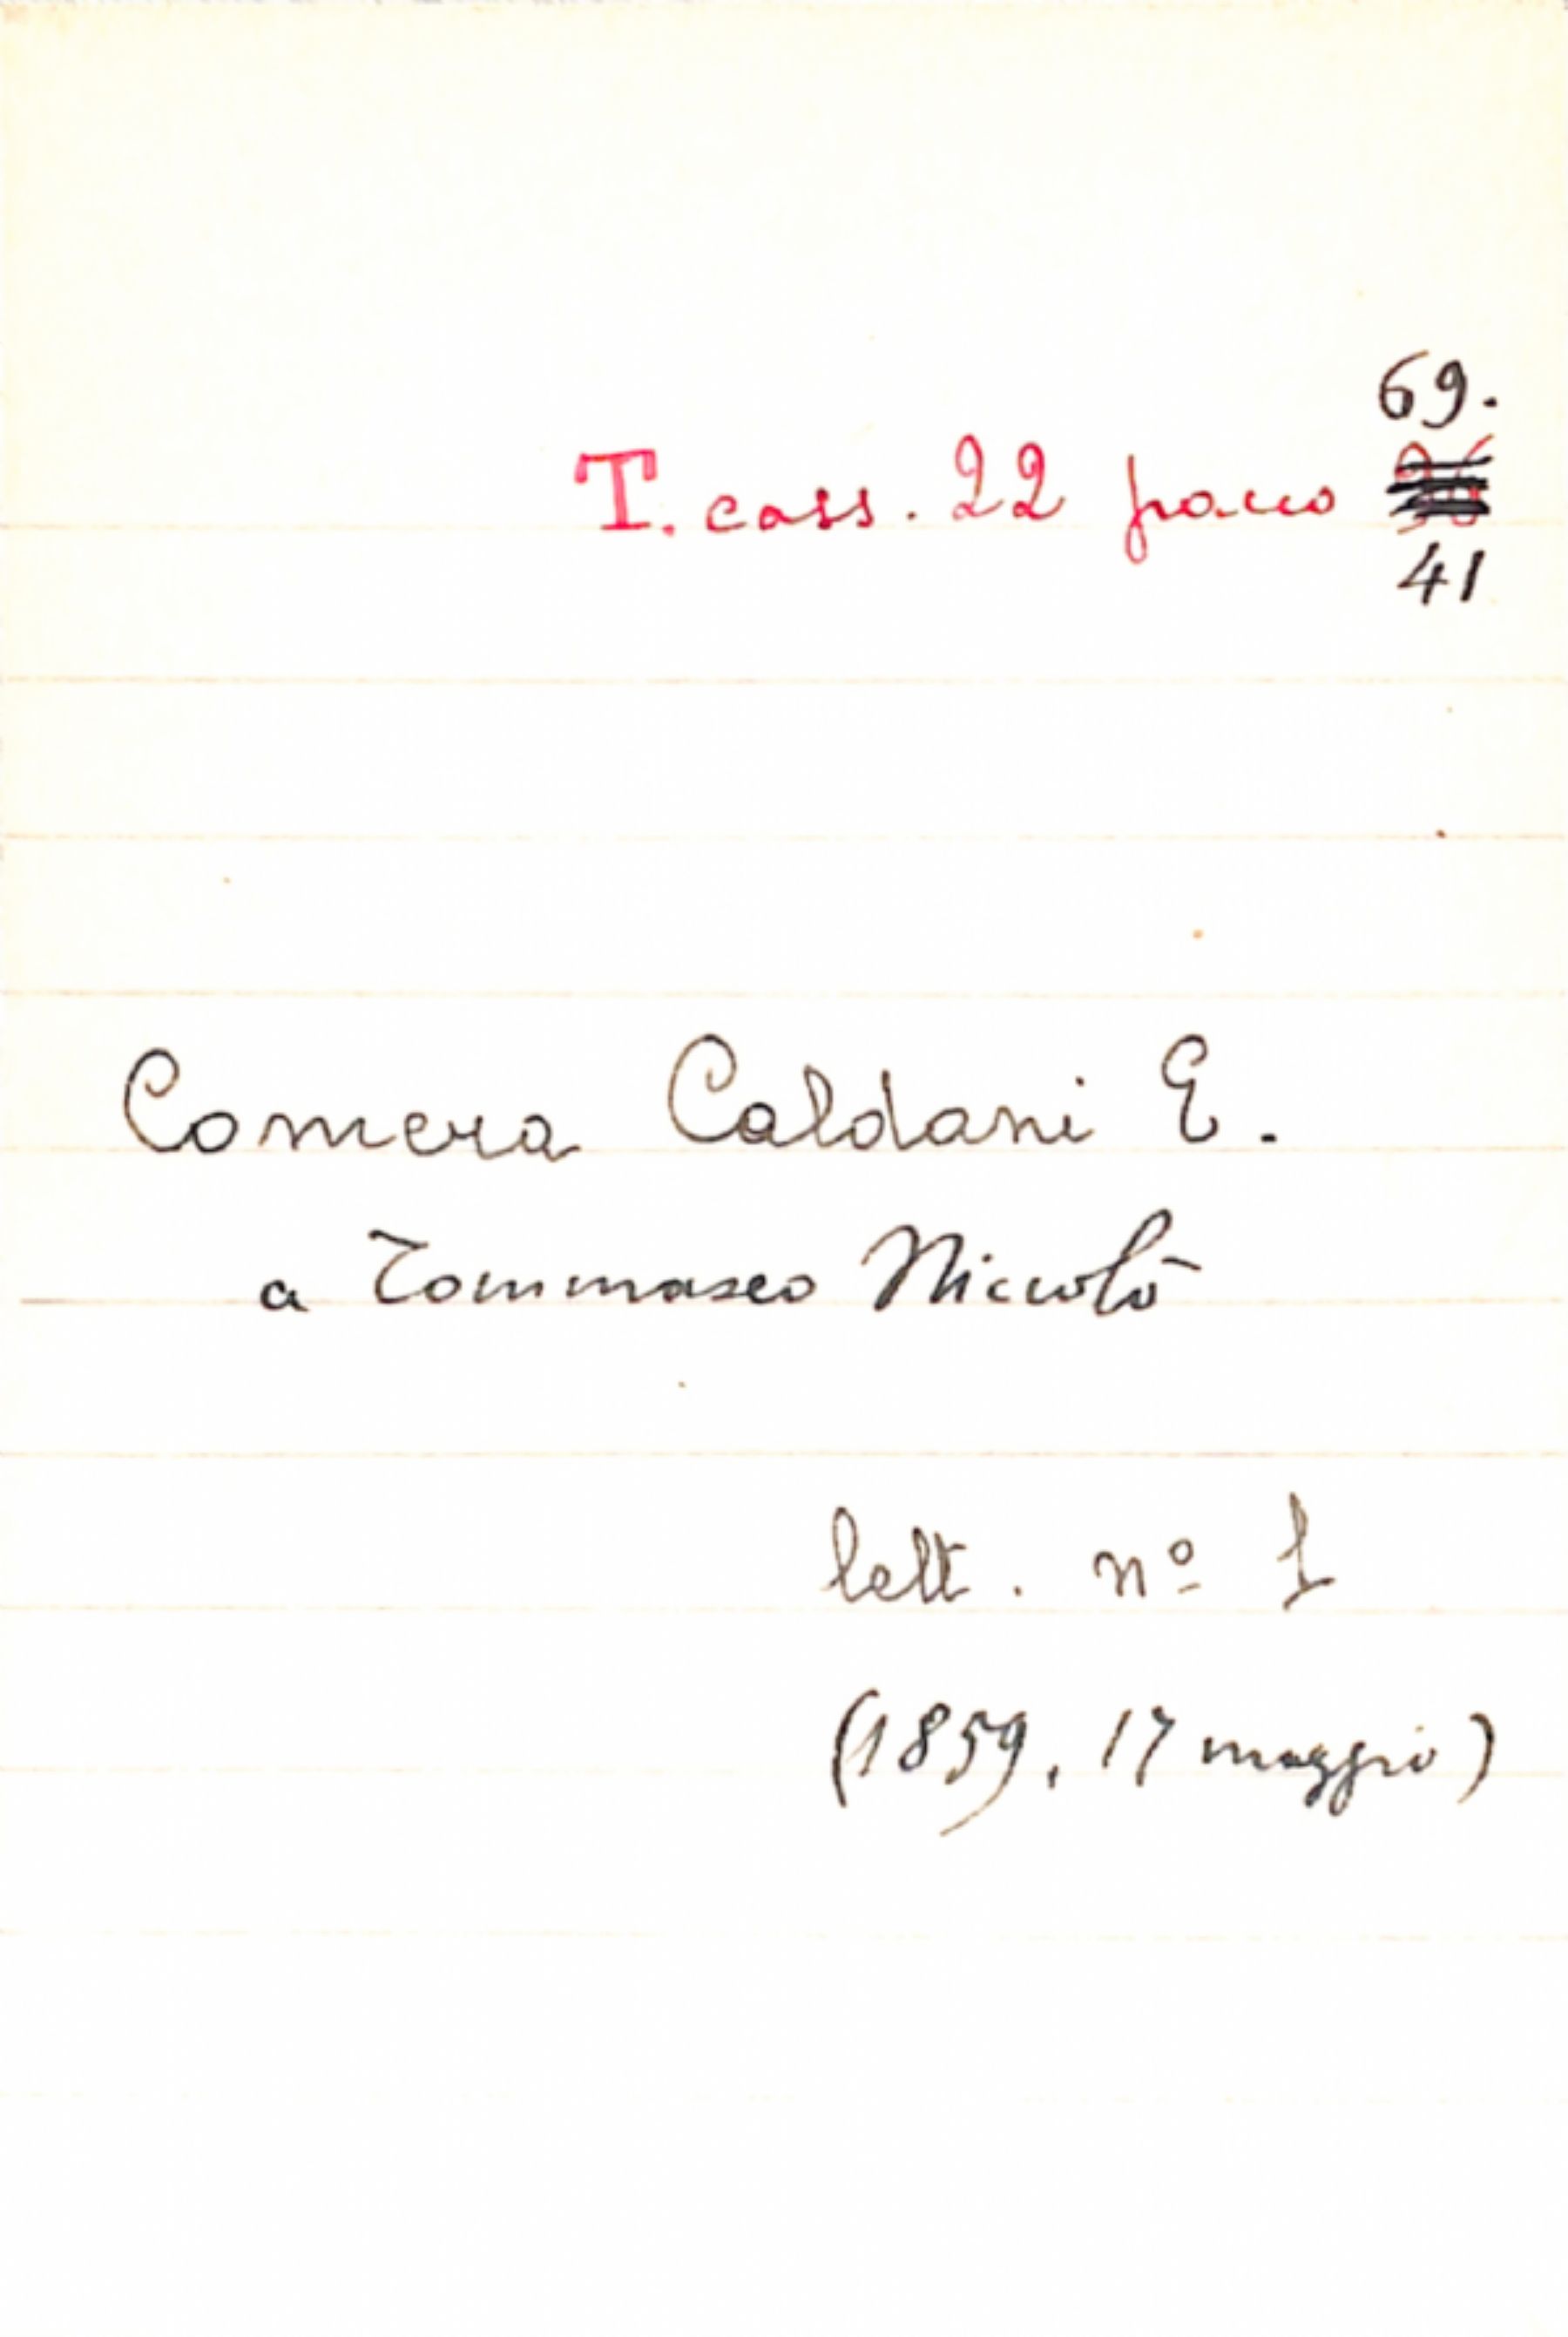 69.
T. cass. 22 pacco
41
Comera Caldani E.
a Tommaseo Niccolò
lett. nº 1
(1859, 17 maggio)